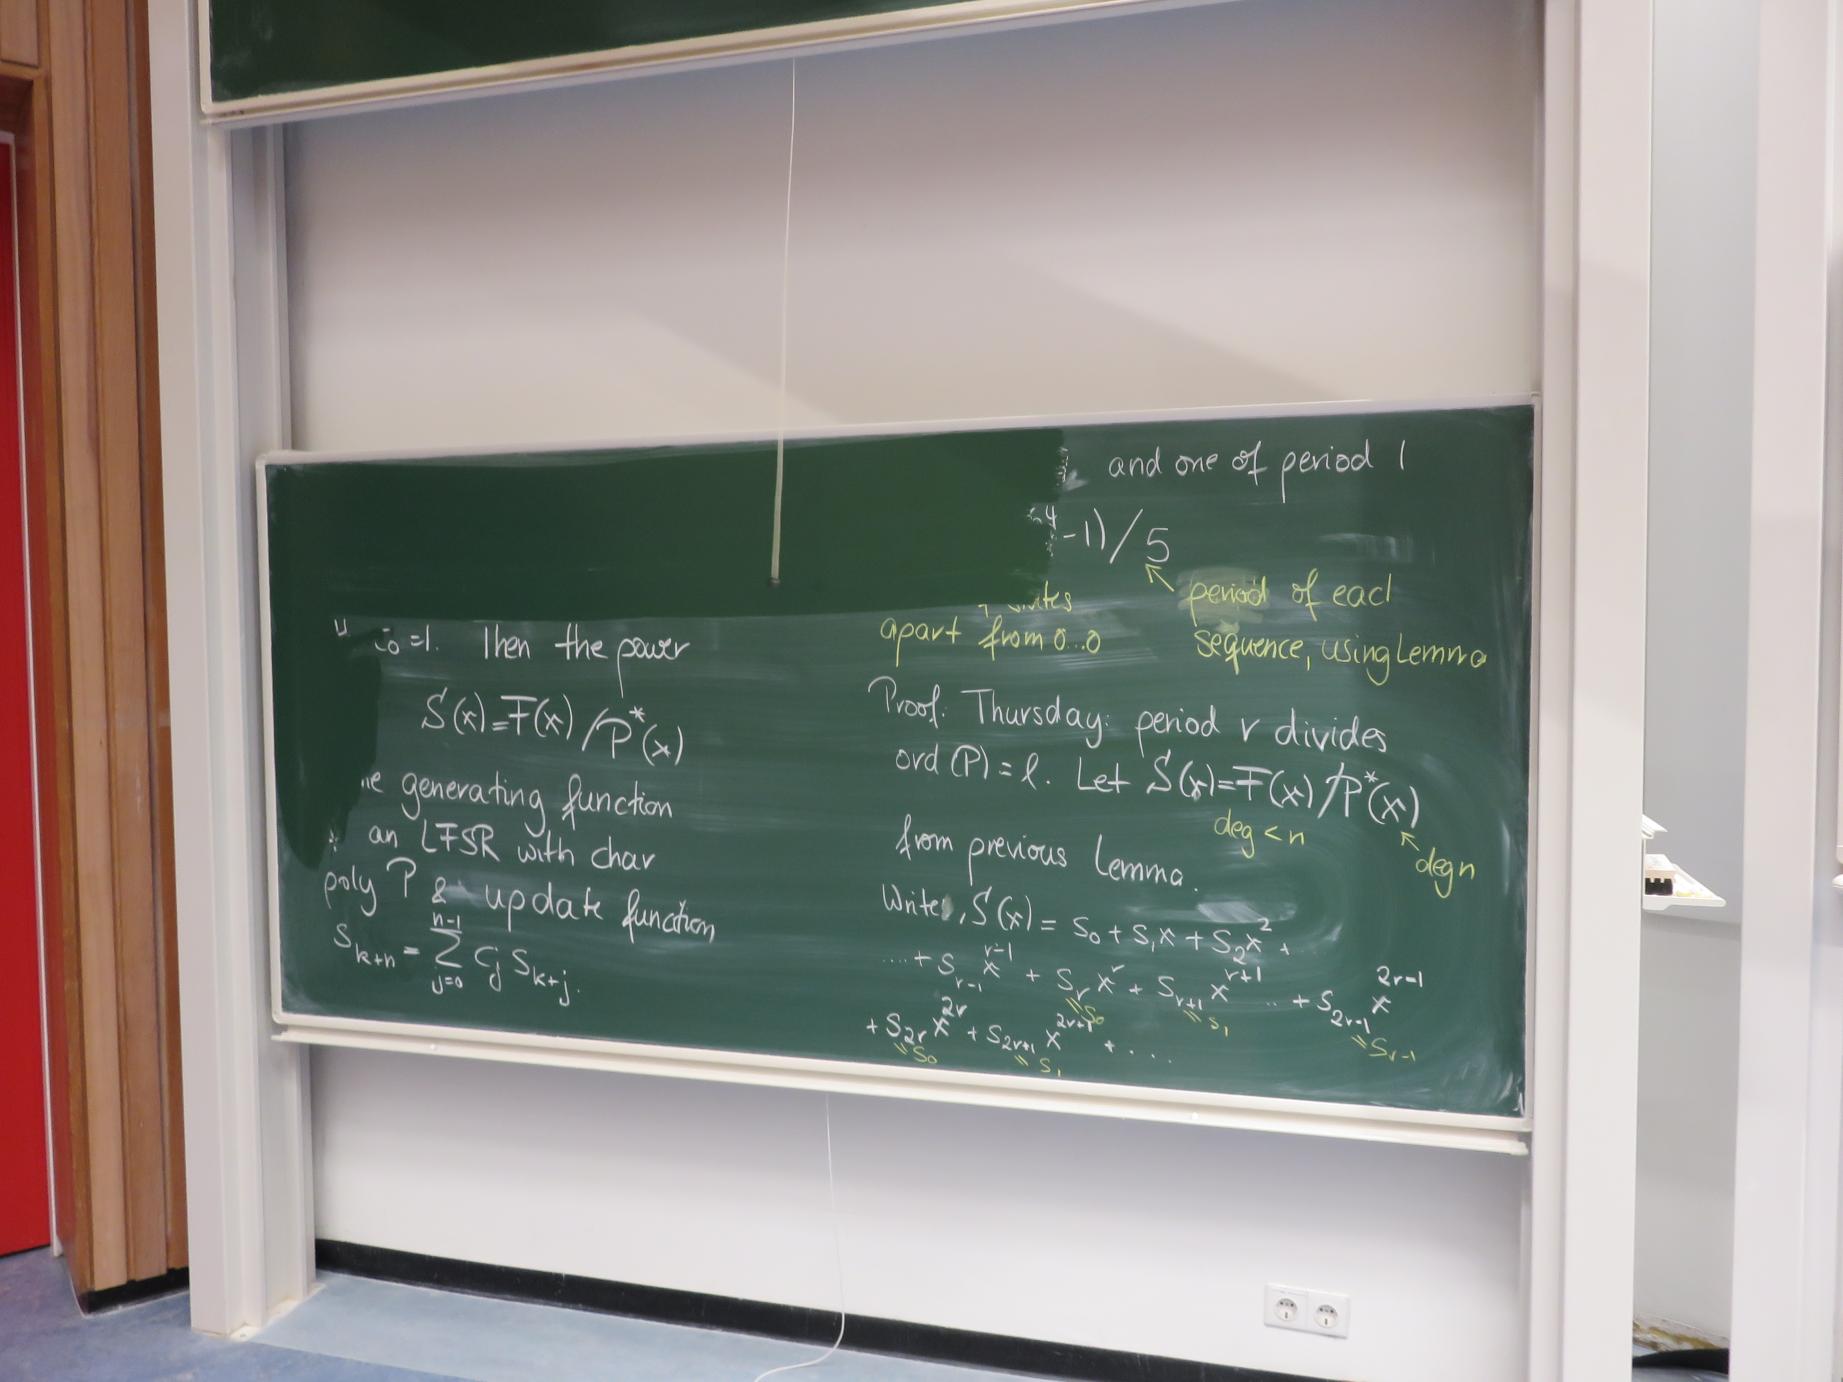 =1. Then the power
S(x)=F(x)/P*(x)
generating function
an LFSR with char
poly P & update function
S_{k+n} = \sum_{j=0}^{n-1} C_j S_{k+j}.
and one of period 1
-1)/5
period of each
apart from 0...0
sequence, using Lemma
Proof: Thursday: period r divides
ord(P)=ℓ. Let S(x)=F(x)/P*(x)
deg < n
deg n
from previous Lemma.
Write, S(x) = S_0 + S_1x + S_2x^2 +
....+ S_{r-1}x^{r-1} + S_r x^r + S_{r+1}x^{r+1} .. + S_{2r-1}x^{2r-1}
=S_0 =S_1 =S_{r-1}
+ S_{2r}x^{2r} + S_{2r+1}x^{2r+1} + ....
=S_0 =S_1